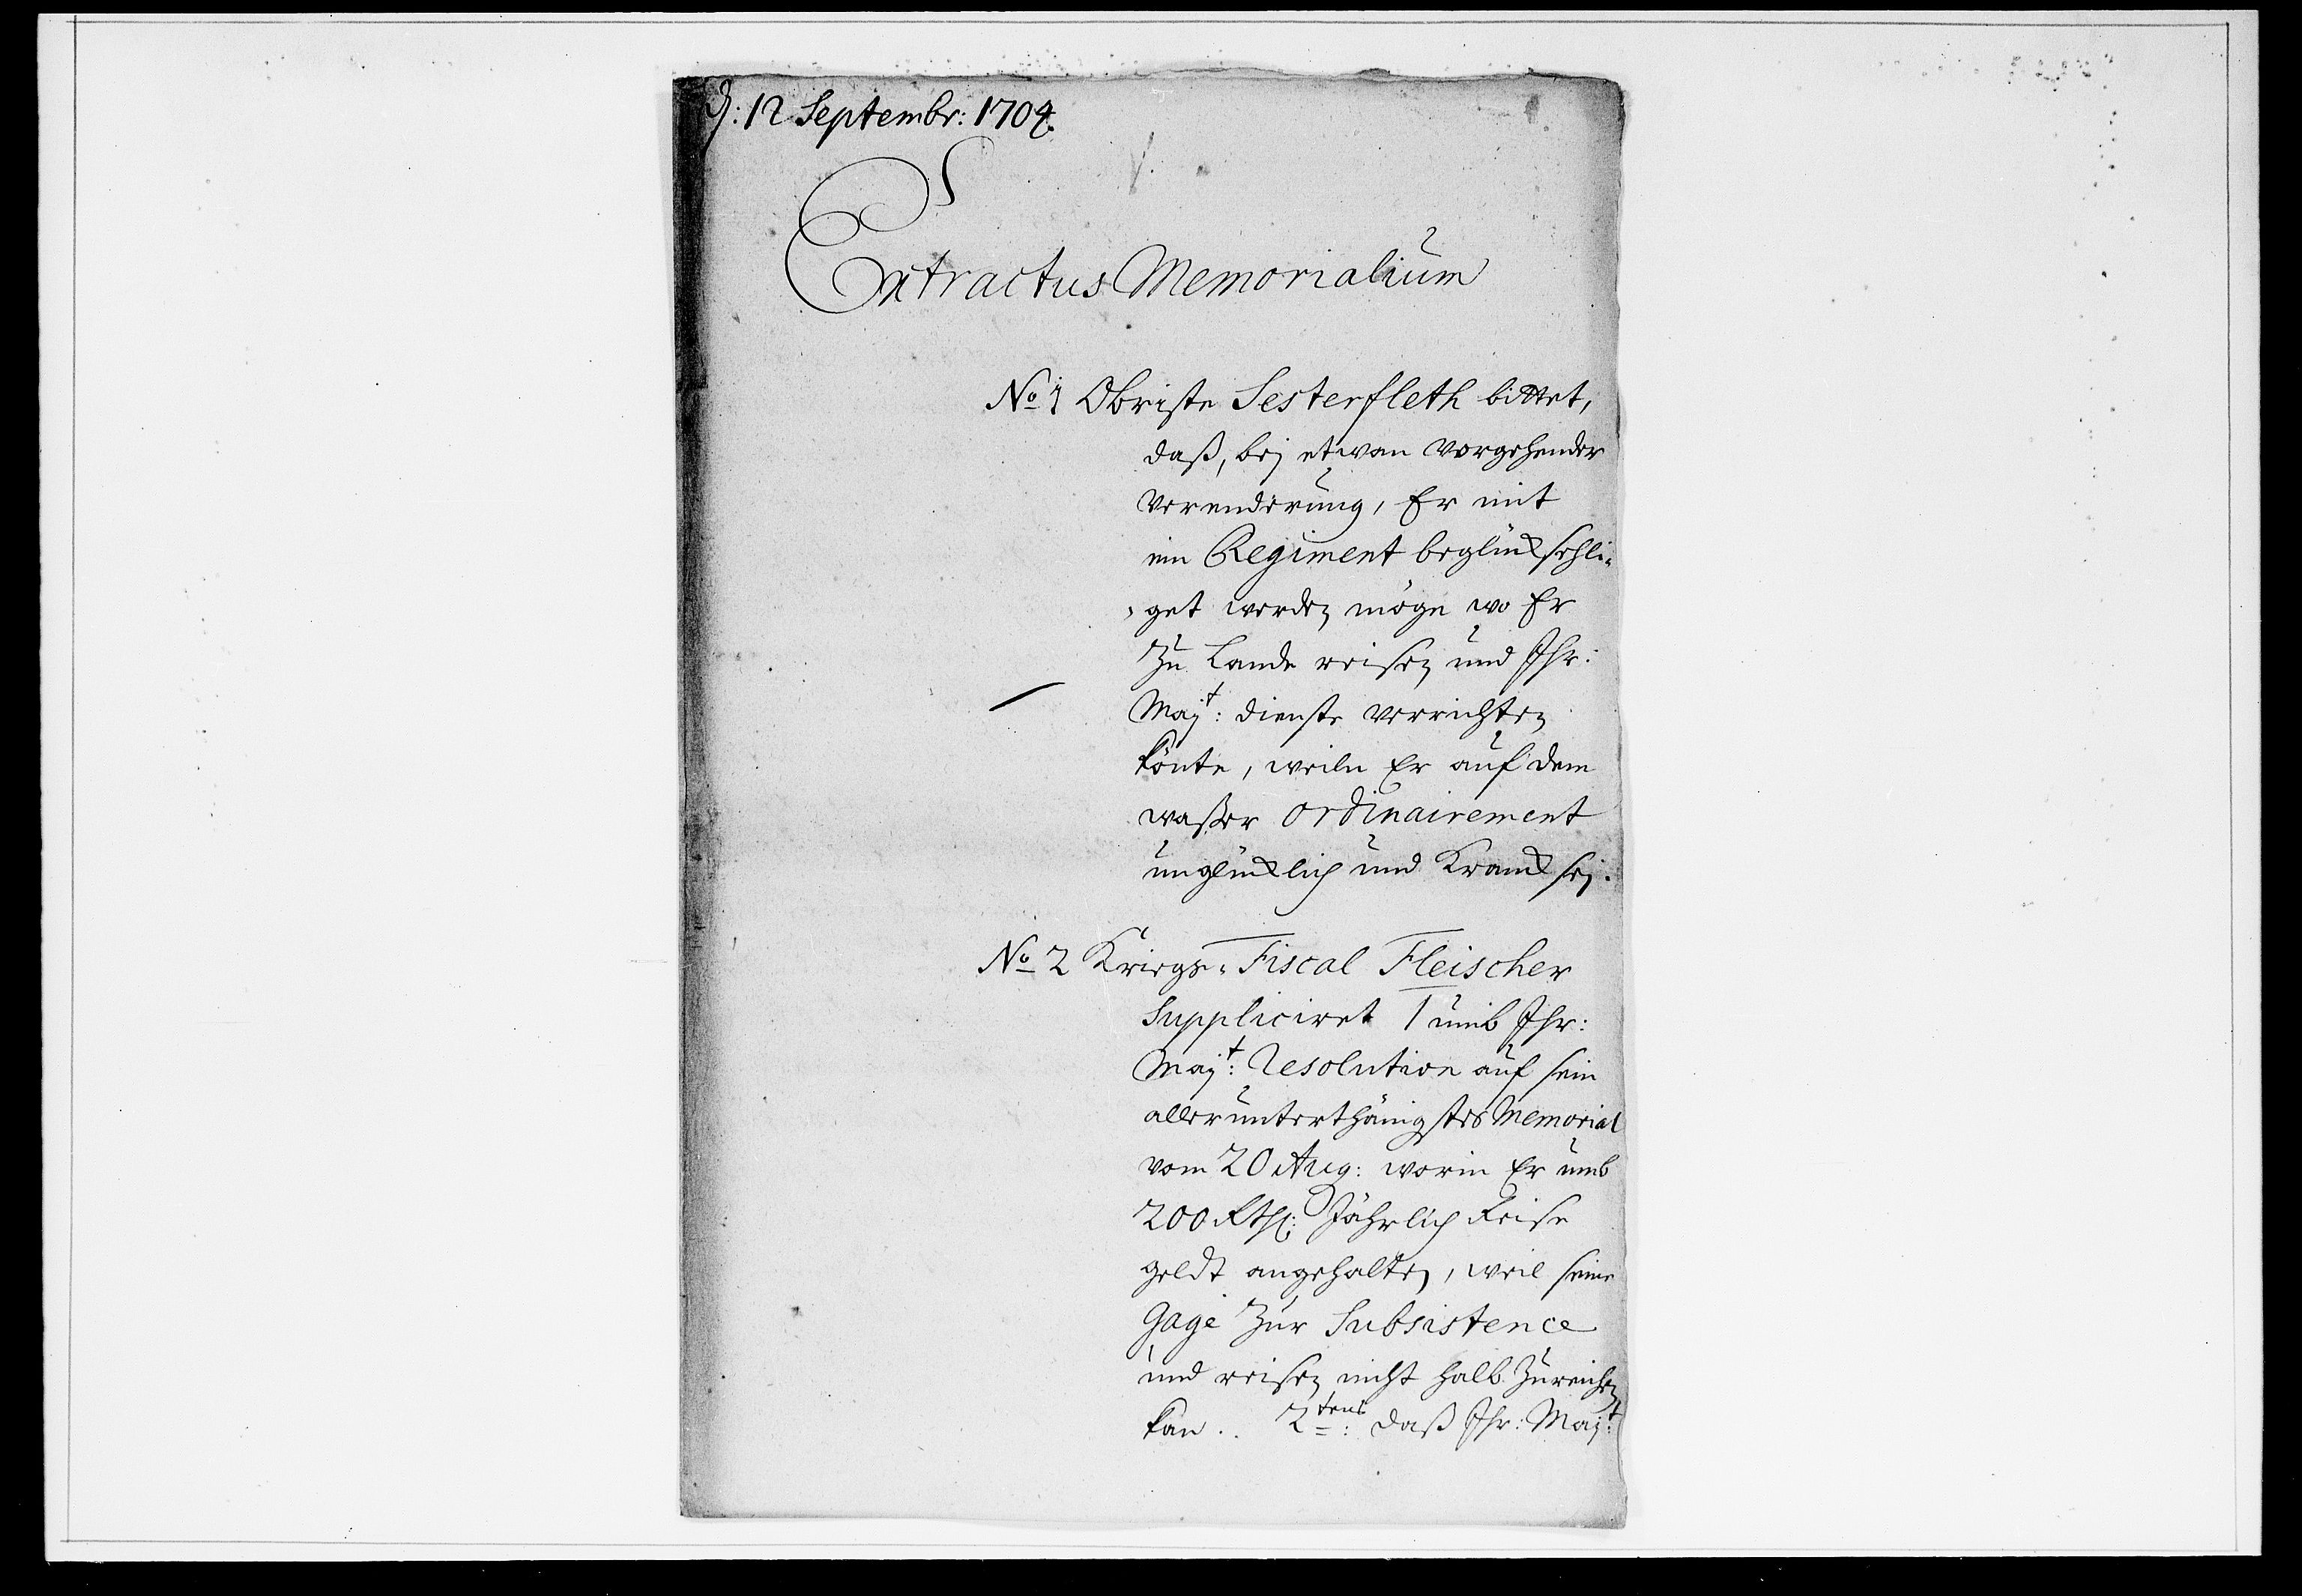 d: 12 Septembr: 1704.
Extractus Memorialium
No 1 Obriste Sesterfleth bittet,
daß, bej etwan vorgehender
verenderung, Er mit
ein Regiment beglückseeli-
get werden möge wo Er
zu Lande reisen und Ihr:
Majt: dienste verrichten
könte, weiln Er auf dem
waßer ordinairement
unglücklich und Kranck sej.
No 2 Kriegs-Fiscal Fleischer
Suppliciret 1 umb Ihr:
Majt: Resolution auf sein
allerunterthänigstes Memorial
vom 20 Aug: worin Er umb
200 Rthl: Jährlich Reise
geldt angehalten, weil seine
Gage zur Subsistence
und reisen nicht halb zureichen
kan.. 2tens: daß Ihr: Majt: